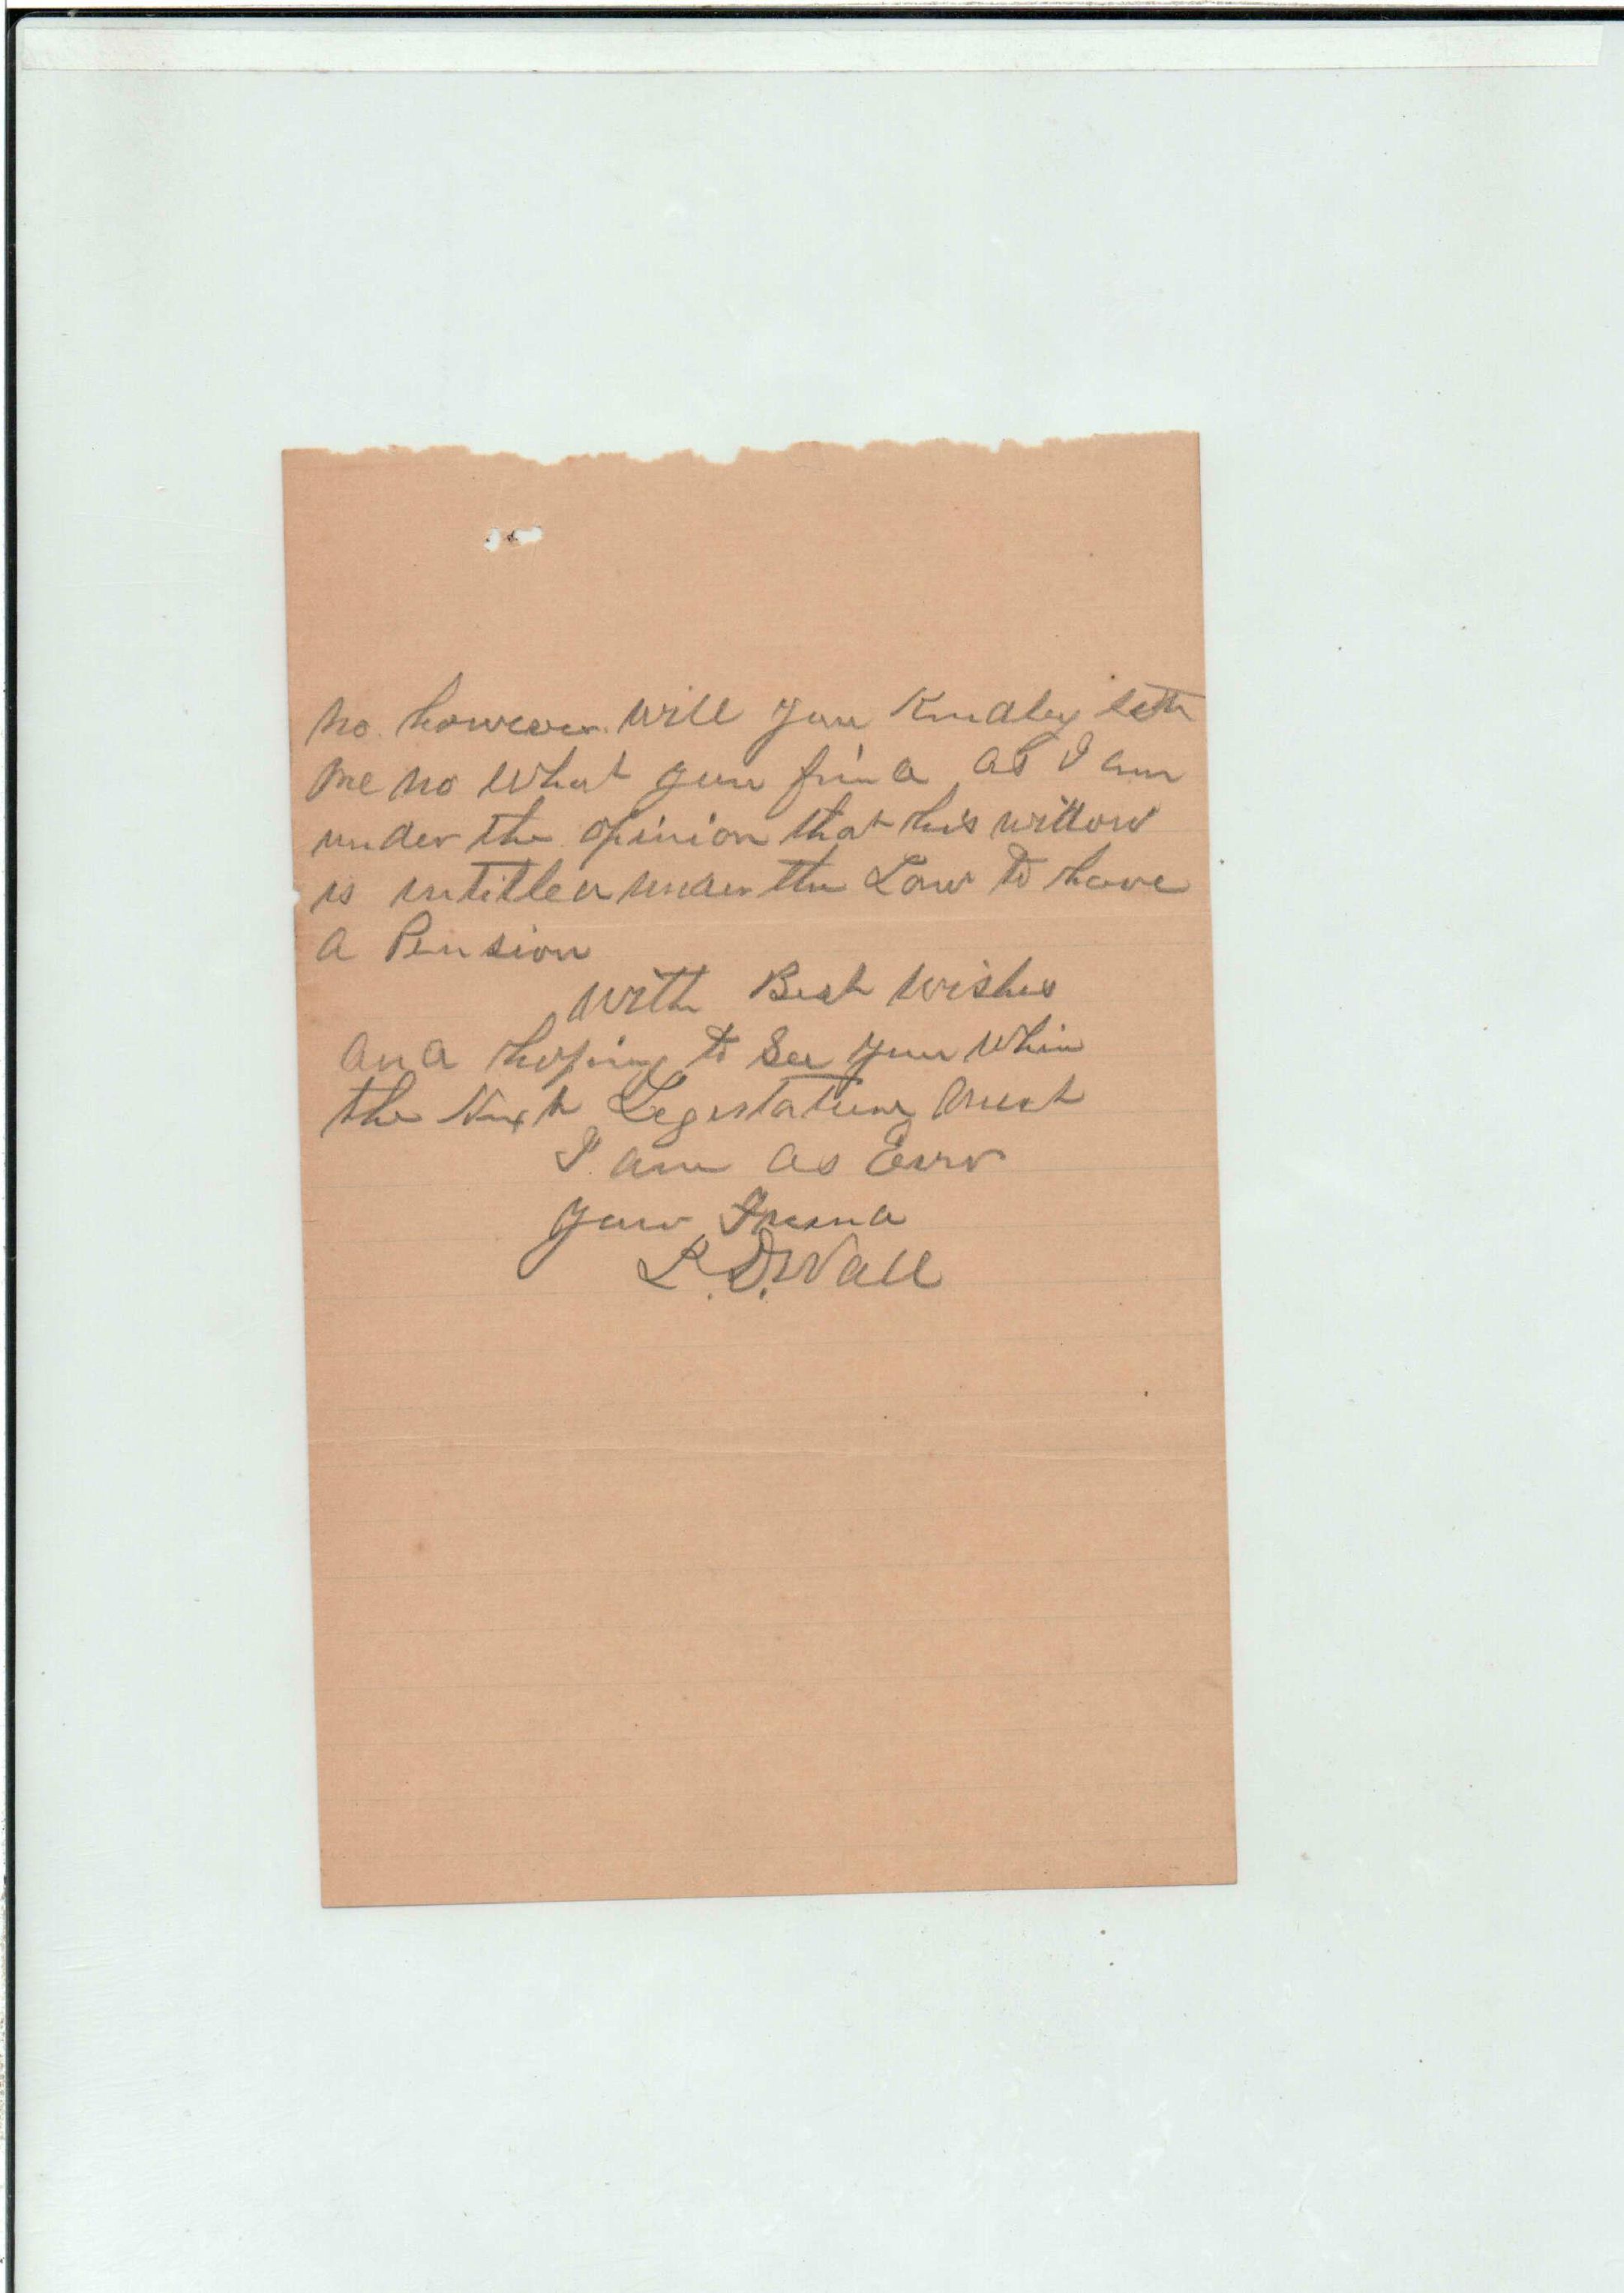 no. however. will you Kindley lett
me no what you find as I am
under the opinion that his widdow
is intitled under the Law to have
a Pension
with Best wishes
and hoping to See you when
the Next Legestature meet
I am as Ever
your Friend
L. D. Wall